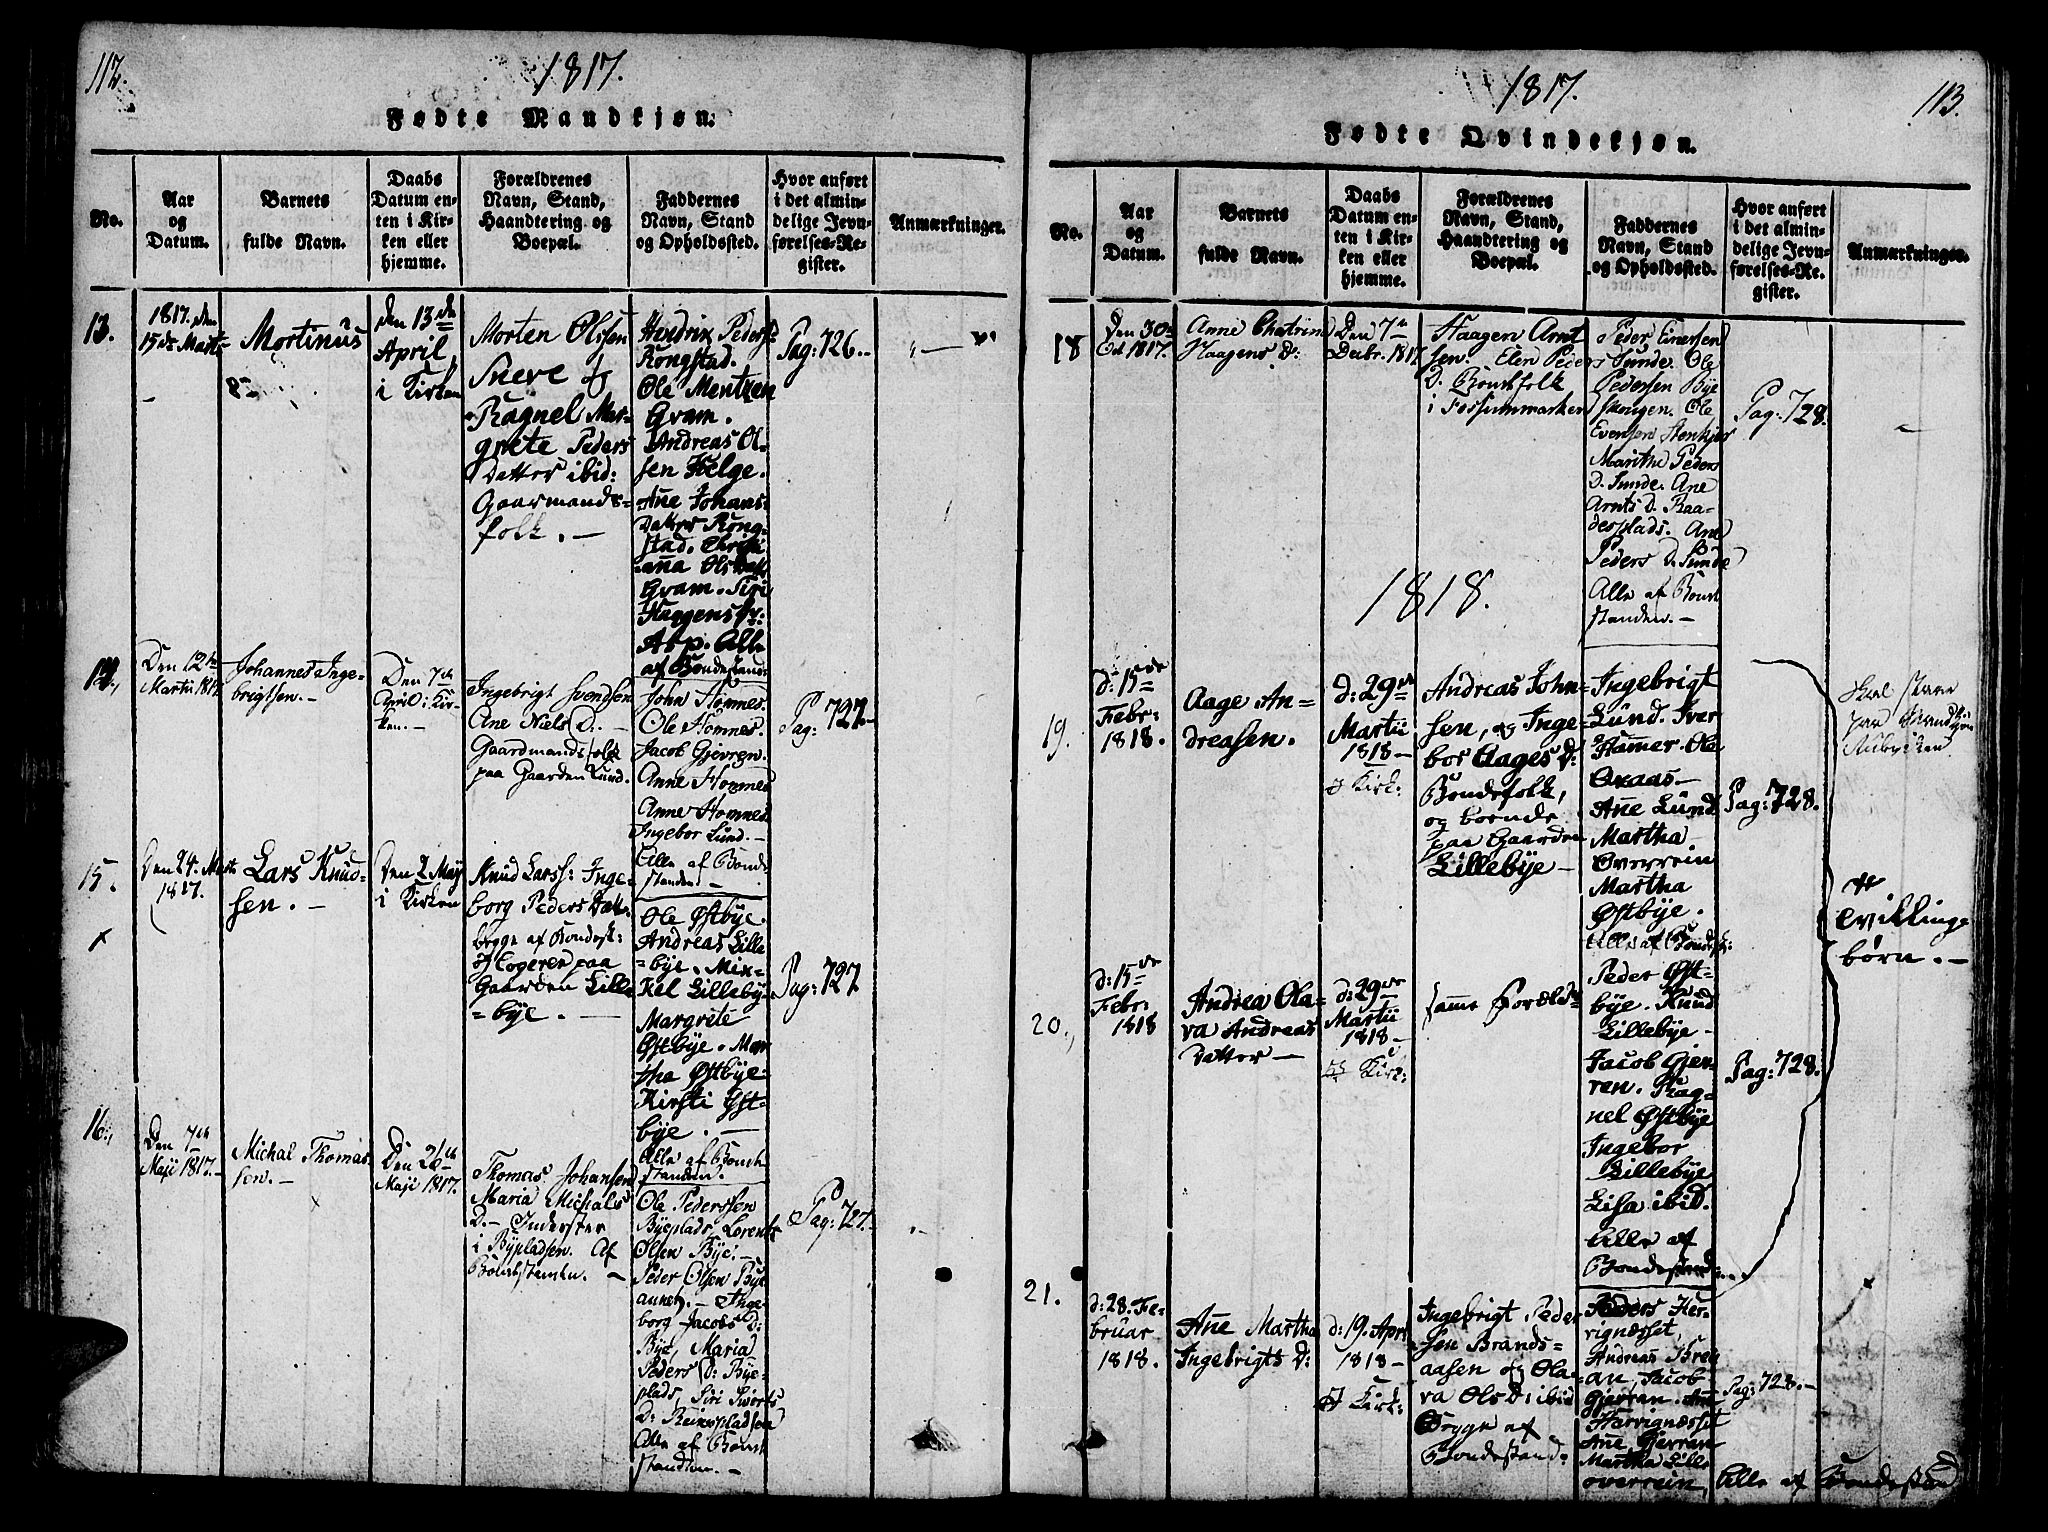 112.
1817.
Fødte Mandkjøn.
No.
Aar
og
Datum.
Barnets
fulde Navn.
Daabs
Datum en-
ten i Kir-
ken eller
hjemme.
Forældrenes
Navn, Stand,
Haandtering og
Boepæl.
Faddernes
Navn, Stand
og Opholdssted.
Hvor anført
i det almin-
delige Jevn-
førelses-Re-
gister.
Anmærkninger.
13.
1817. den
15de Marts
Mortinus
den 13de
April,
i Kirken
Morten Olssen
Sneve
Ragnel Mar-
grete Peders
Datter ibid:
Gaarmands-
folk. —
Hendrix Peders:
Rongstad.
Ole Mentzen
Gram.
Andreas Ol-
sen Helge.
Ane Johans
Datter Rong-
stad. Christi
ana Ols Datt
Gram. Siri
Haagens Dr:
Asp. Alle
af Bondestand:
Pag: 726.
14.,
Den 12te
Martii 1817.
Johannes Inge-
brigtsen.
Den 7de
April i Kir-
ken. —
Ingebrigt Svendsen
Ane Niels D. —
Gaardmandsfolk
paa Gaarden Lund.
John Hommes.
Ole Hommes.
Jacob Gjevren.
Anne Hommes
Anne Hommes
Ingebor Lund. —
Alle af Bonde
standen. —
Pag: 727.
15.
Den 24. Marts
1817.
Lars Knud-
sen. —
Den 2 May
i Kirken
Knud Larss: Inge-
borg Peders Datt:
begge af Bondesk:
og Logeren paa
Gaarden Lille
=bye. —
Ole Østbye.
Andreas Lille
=bye. Mix-
Kel Lillebye
Margrete
Østbye. Mar
tha Østbye
Kirsti Øst-
bye. —
Alle af Bonde
standen.
Pag: 727.
16.,
Den 7de
Maji 1817. —
Michal Thomas
sen. —
Maji 1817.
Thomas Johansen
Maria Michals
D. — Inderster
i Byepladsen. Af
Bondestanden. —
Ole Pederssen
Byeplads, Lorents
Olsen Bye. —
Peder Olsen Bye
Inge
borg Jacobs D:
Bye, Maria
Peders D: Bye-
plads, Siri Siverts
D: Reinspladsen
Alle af Bonde
standen. —
Pag: 727.
1817.
113.
Fødte Qvindekjøn.
No.
Aar
og
Datum.
Barnets
fulde Navn.
Daabs
Datum en-
ten i Kir-
ken eller
hjemme.
Forældrenes
Navn, Stand,
Haandtering og
Boepæl.
Faddernes
Navn, Stand
og Opholdssted.
Hvor anført
i det almin-
delige Jevn-
førelses-Re-
gister.
Anmærkninger.
18
Den 30te
Oct 1817.
Anne Chatrine
Haagens D:
Den 7de
Decbr. 1817
Haagen Arnt
sen. Elen Peders
D. Bondefolk
i Fossummarken
Peder Einersen
Sunde. Ole
Pedersen Bye
skougen. Ole
Evensen Stenkjer
Marithe Peders
D. Sunde. Ane
Arnts D. Raa-
desplads. Ane
Peders D. Sunde
Alle af Bonde
standen. —
Pag: 728.
1818.
19.
d: 15de
Febr:
1818.
Aage An-
dreasen.
d: 29de
Martii
1818 —
i Kirk:
Andreas John-
sen, og Inge-
bor Aages D:
Bondefolk,
og boende
paa Gaarden
Lillebye —
Ingebrigt
Lund. Iver
Hammer. Ole
Ovaas —
Ane Lund
Martha
Overrein
Martha
Østbye.
Alle af Bondest:
Pag: 728.
Skal staae
paa Mandkjøn
20.,
d: 15de
Febr:
1818
Andrea Ola-
va Andreas
Datter —
d: 29de
Martii
1818 —
Kirk:
samme Foreld:
Peder Øst-
bye. Knud
Lillebye —
Jacob Gjev-
ren. Rag-
nel Østbye
Ingebor
Lillebye
Lisa ibid.
Alle af
Bondestand:
Pag: 728.
Tvillinge
børn. —
21.
d: 28. Fe-
bruar
1818.
Ane Martha
Ingebrigts D:
d: 19. Apr:
1818 —
i Kirk:
Ingebrigt Peder
sen Brands-
aasen og Ola-
va Ols D: ibid
Begge af
Bondestand:
Peders Her-
rignæsset,
Andreas Brei
an, Jacob
Gjevran. Ane
Harrignæsset
Ane Gjevran
Martha Lille
overrein, Alle af Bondestand
Pag: 728. —